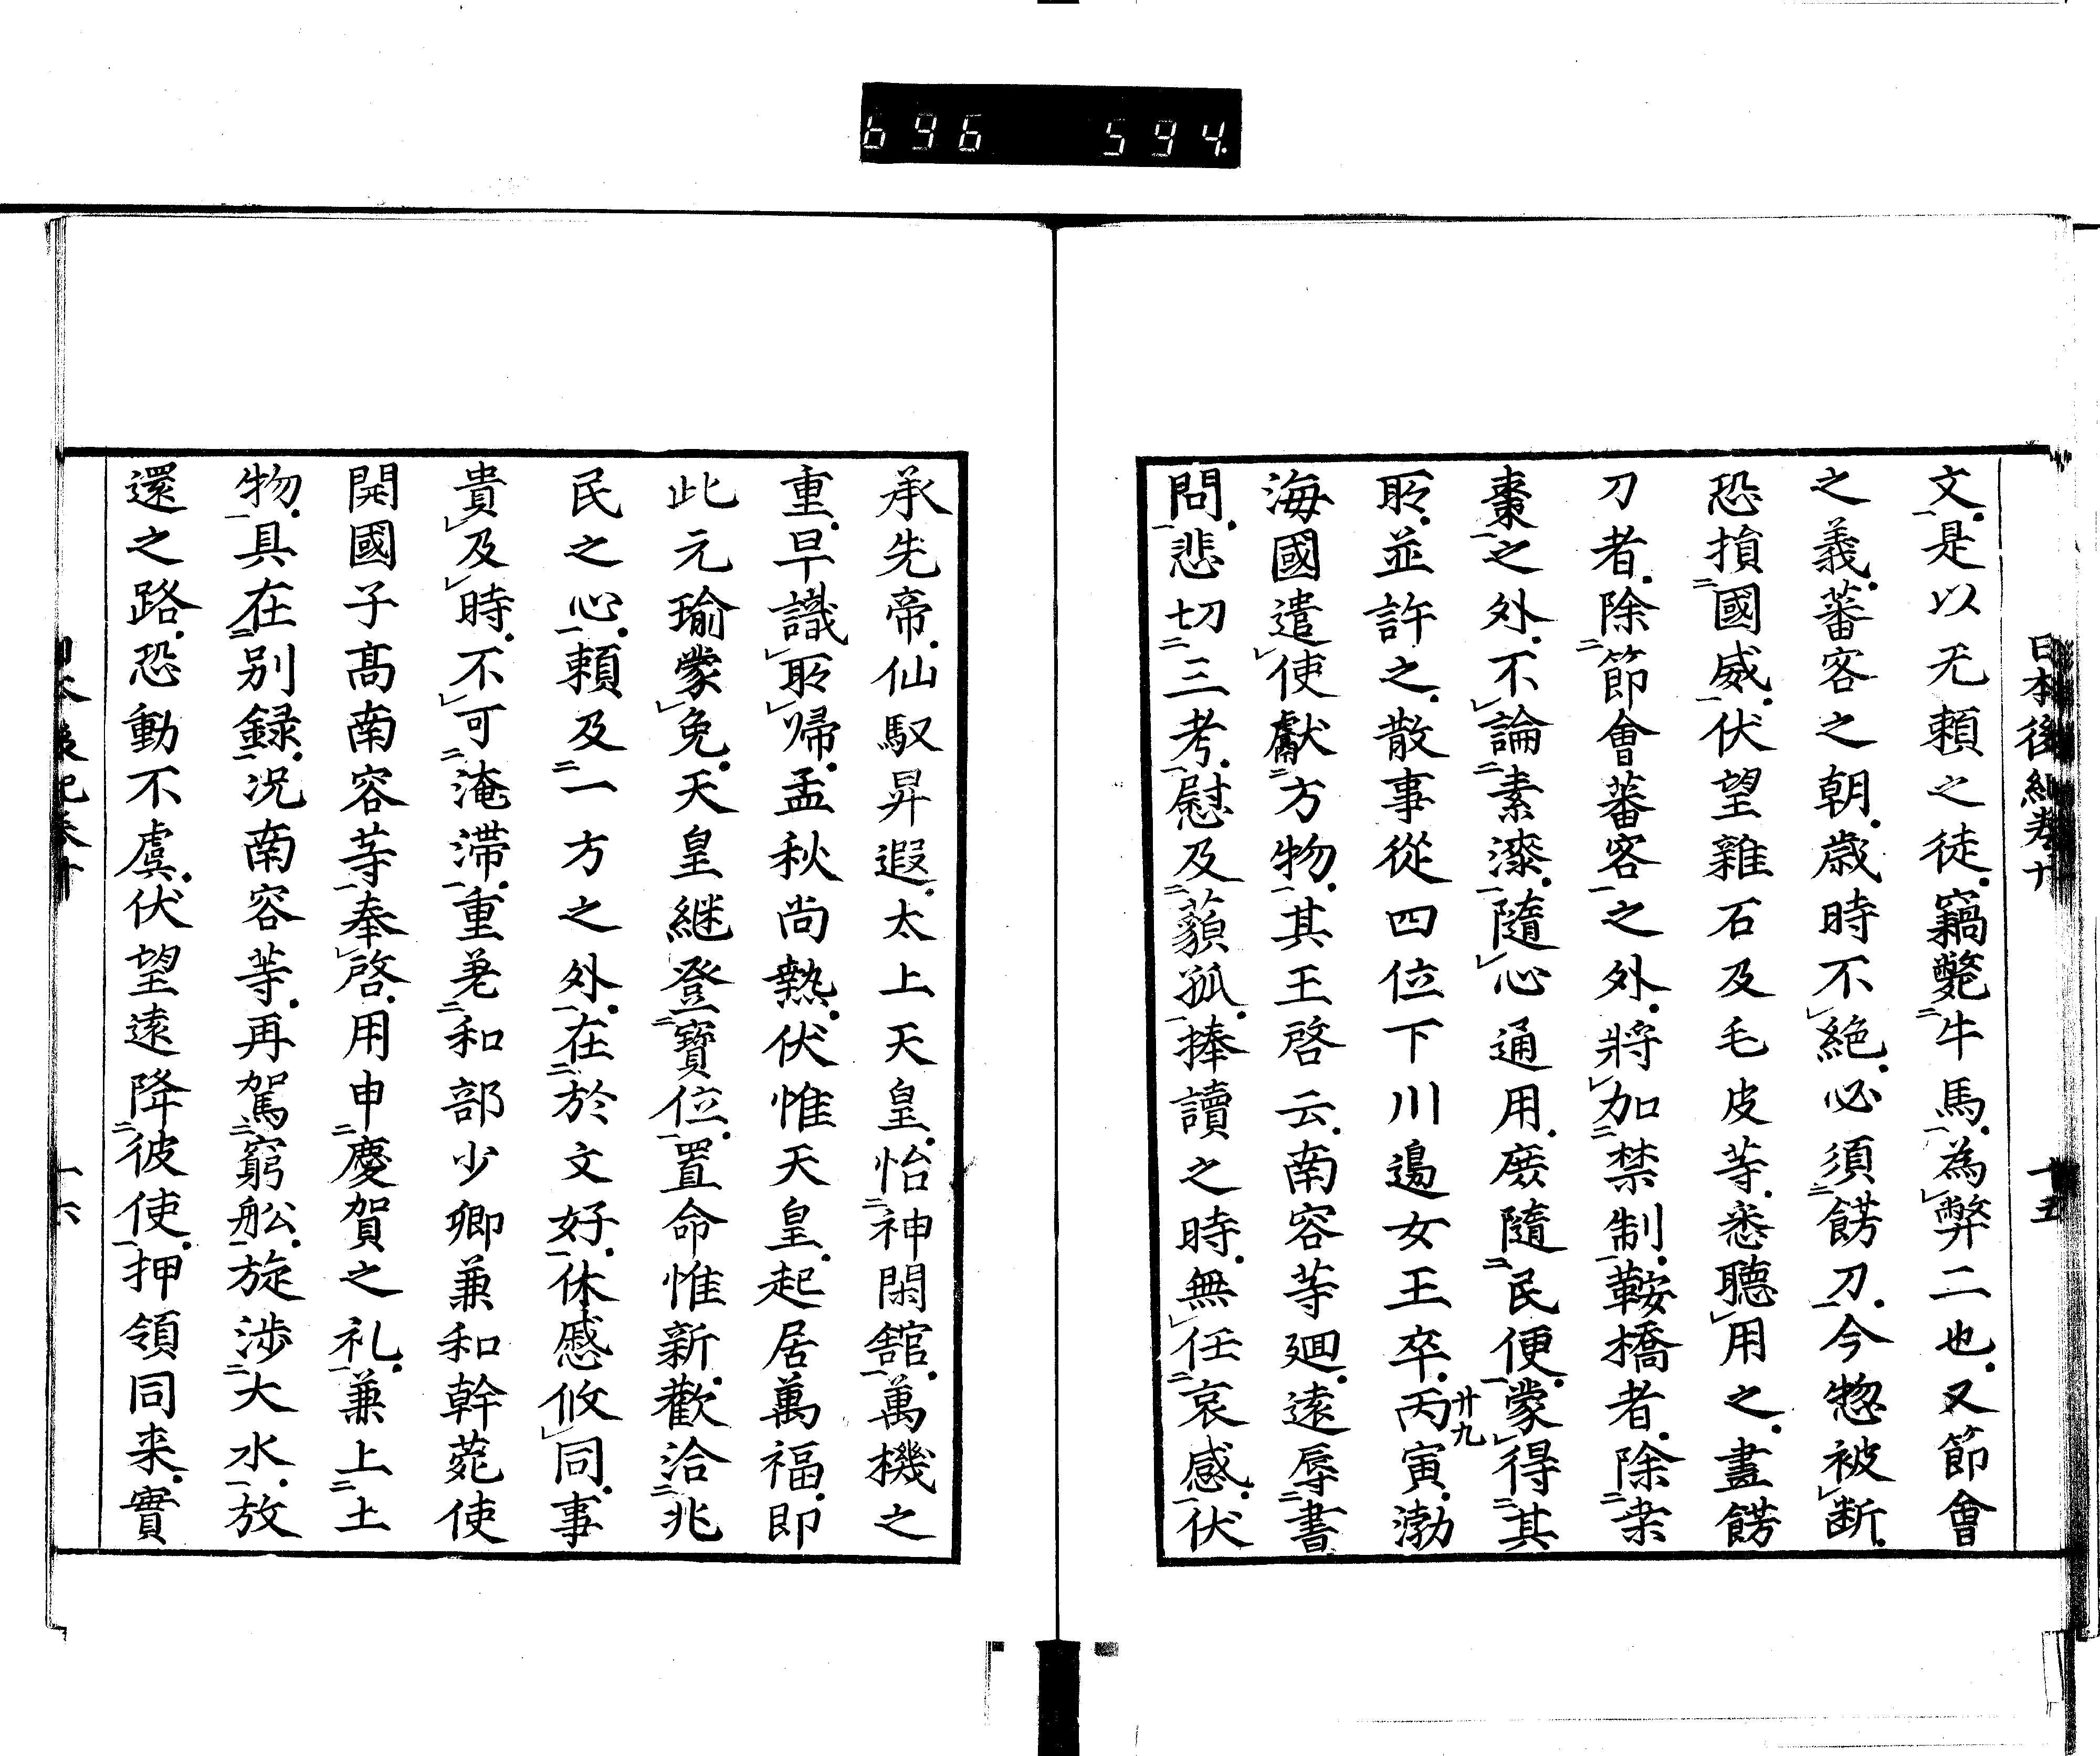 696 594
日本後紀卷十 十五
文是以无賴之徒竊斃牛馬為弊二也又節會
之義蕃客之朝歲時不絕必須餝刀今惣被断
恐損國威伏望雜石及毛皮等悉聽用之畫餝
刀者除節會蕃客之外將加禁制鞍橋者除桒
棗之外不論素漆隨心通用庶隨民便蒙得其
所並許之散事從四位下川邊女王卒丙寅渤
廿九
海國遣使獻方物其王啓云南容等廻遠辱書
問悲切三考慰及藐孤捧讀之時無任哀感伏
承先帝仙馭昇遐太上天皇怡神閑舘萬機之
重早識所歸孟秋尚熱伏惟天皇起居萬福即
此元瑜蒙免天皇継登寶位置命惟新歡洽兆
民之心賴及一方之外在於文好休慼攸同事
貴及時不可淹滯重差和部少卿兼和幹菀使
開國子髙南容等奉啓用申慶賀之礼兼上土
物具在別録况南容等再駕窮舩旋渉大水放
還之路恐動不虞伏望遠降彼使押領同来實